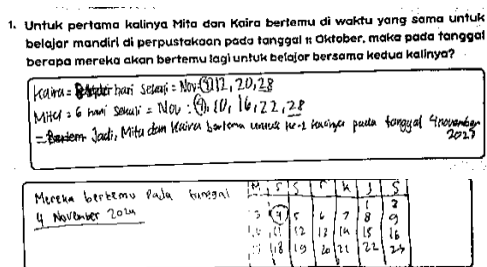 1. Untuk pertama kalinya Mita dan Kaira bertemu di waktu yang sama untuk
belajar mandiri di perpustakaan pada tanggal 11 Oktober, maka pada tanggal
berapa mereka akan bertemu lagi untuk belajar bersama kedua kalinya?
Kaira = 8 hari sekali = Nov: 4, 12, 20, 28
Mita = 6 hari sekali = Nov : 4, 10, 16, 22, 28
= Jadi, Mita dan Kaira bertemu untuk ke-2 kalinya pada tanggal 4 november
2023
Mereka bertemu Pada tanggal
4 November 2024
M S S r k J S
1 2
3 4 5 6 7 8 9
11 12 13 14 15 16
18 19 20 21 22 23